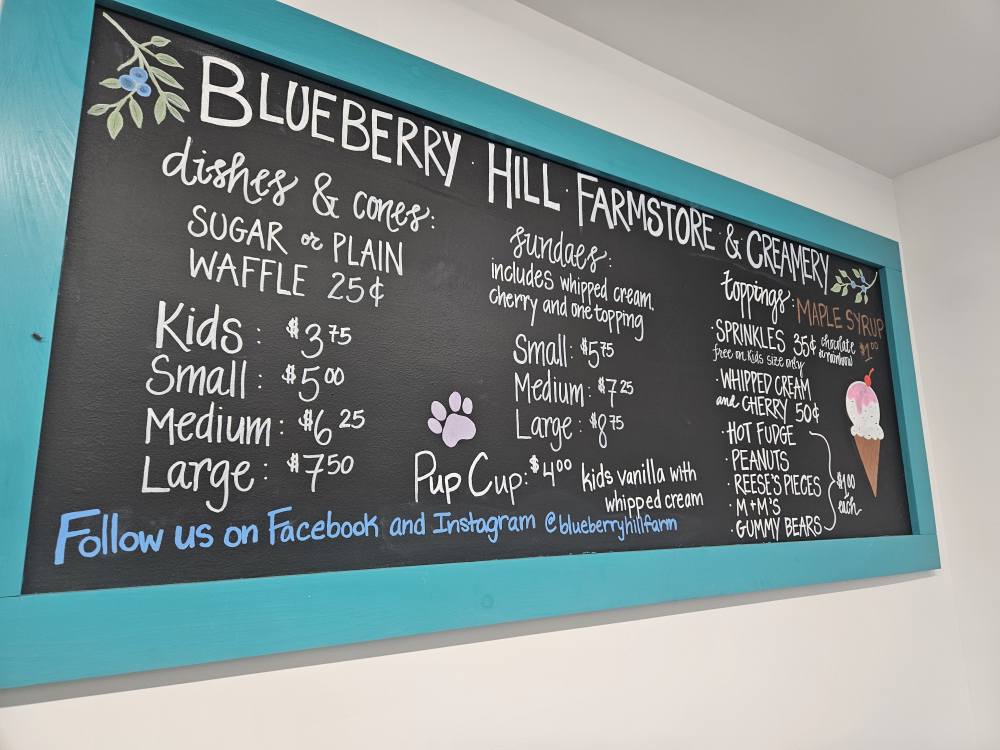 BLUEBERRY · HILL · FARMSTORE & CREAMERY
dishes & cones:
SUGAR or PLAIN
WAFFLE 25¢
Kids: $3 75
Small: $5 00
Medium: $6 25
Large: $7 50
sundaes:
includes whipped cream,
cherry and one topping
Small: $5 75
Medium: $7 25
Large: $8 75
Pup Cup: $4 00 kids vanilla with
whipped cream
toppings: MAPLE SYRUP
$1 00
· SPRINKLES 35¢ chocolate
& rainbow
free on Kids size only
· WHIPPED CREAM
and CHERRY 50¢
· HOT FUDGE
· PEANUTS
· REESE'S PIECES
· M+M'S
· GUMMY BEARS
$1.00
each
Follow us on Facebook and Instagram @blueberryhillfarm